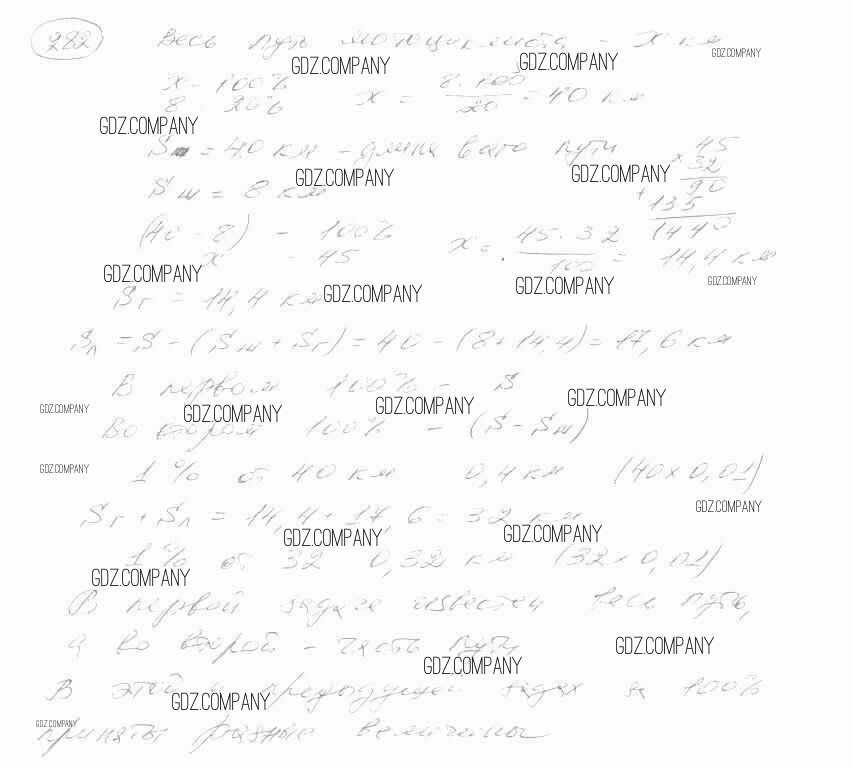 282 Весь путь мотоциклиста - x км
GDZ.COMPANY GDZ.COMPANY GDZ.COMPANY
x - 100%
8 - 20% x = 8·100/20 = 40 км
GDZ.COMPANY
S = 40 км - длина всего пути 45
GDZ.COMPANY GDZ.COMPANY × 32
Sш = 8 км 90
+ 135
(40 - 8) - 100% 1440
x - 45 x = 45·32/100 = 14,4 км
GDZ.COMPANY GDZ.COMPANY GDZ.COMPANY
Sг = 14,4 км GDZ.COMPANY
Sл = S - (Sш + Sг) = 40 - (8+14,4) = 17,6 км
В первом 100% - S
GDZ.COMPANY GDZ.COMPANY GDZ.COMPANY GDZ.COMPANY
Во втором 100% - (S - Sш)
GDZ.COMPANY 1% от 40 км 0,4 км (40×0,01)
GDZ.COMPANY
Sг + Sл = 14,4 + 17,6 = 32 км
GDZ.COMPANY GDZ.COMPANY
1% от 32 0,32 км (32×0,01)
GDZ.COMPANY
В первой задаче известен весь путь,
а во второй - часть пути
GDZ.COMPANY GDZ.COMPANY
В этой и предыдущей задач за 100%
GDZ.COMPANY
GDZ.COMPANY
приняты разные величины